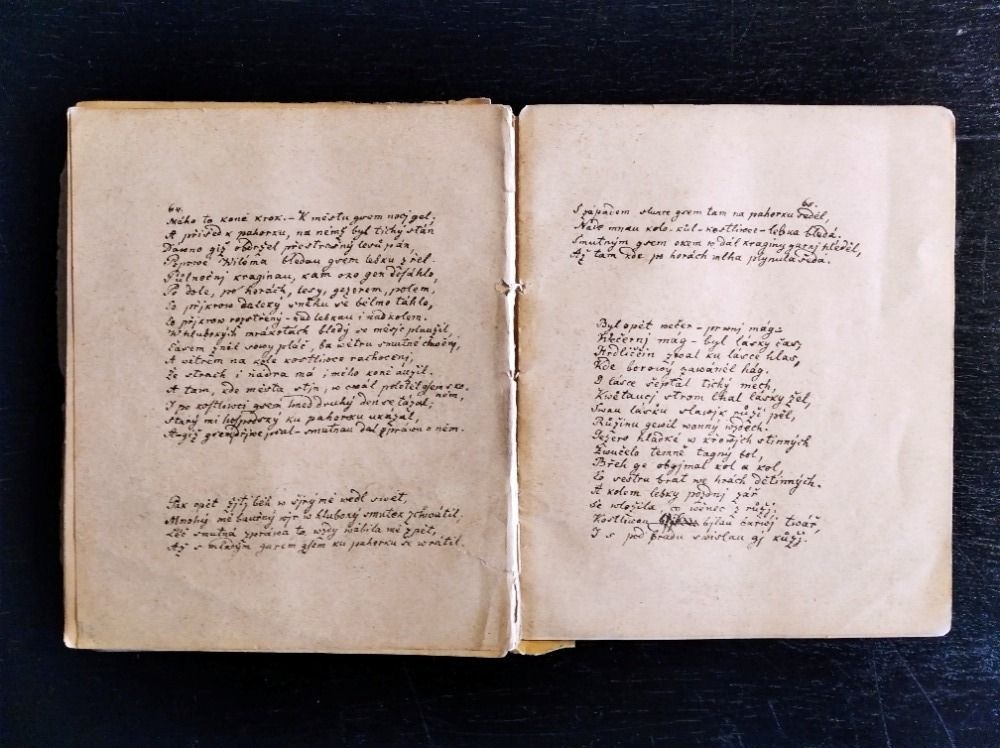 64.
Mého to koně krok. – K městu gsem nocj gel;
A přissed k pahorku, na němž byl tichý stán
Dáwno giž obdržel přestrašný lesů pán,
Poprwé Wiléma bledau gsem lebku zřel.
Půlnočnj kraginau, kam oko gen dosáhlo,
Po dole, po horách, lesy, gezerem, polem,
Co přjkrow daleký sněhu se bělmo táhlo,
Co přjkrow rozstřený – nad lebkau i nad kolem.
W hlubokých mrákotách bledý se měsjc plaužil,
Časem zněl sowy pláč, ba wětru smutné chwěnj,
A wětrem na kole kostliwce rachocenj,
Že strach i ňádra má i mého koně aužil.
A tam, kde města stjn, w cwál poletěl gsem s koněm,
I po kostliwci gsem hned druhý den se tázal;
Starý mi hospodský ku pahorku ukázal,
A – giž gsem dřjwe psal – smutnau dal zpráwu o něm.
Pak opět žitj běh w šjrý mě wedl swět,
Mnohý mě bauřný wjr w hluboký smutek zchwátil,
Leč smutná zpráwa ta wždy wábila mě zpět,
Až s mladým garem gsem ku pahorku se wrátil.
65.
S západem slunce gsem tam na pahorku seděl,
Nade mnau kolo – kůl – kostliwec – lebka bledá.
Smutným gsem okem w dál kraginy garnj hleděl,
Až tam kde po horách mlha plynula šedá.
Byl opět wečer – prwnj mág –
Wečernj mág – byl lásky čas;
Hrdliččin zwal ku lásce hlas,
Kde borowý zawáněl hág.
O lásce šeptal tichý mech,
Kwětaucj strom lhal lásky žel,
Swau lásku slawjk růži pěl,
Růžinu gewil wonný wzdech.
Gezero hladké w křowjch stinných
Zwučelo temně tagný bol,
Břeh ge obgjmal kol a kol,
Co sestru bratr we hrách dětinných.
A kolem lebky pozdnj zář
Se wložila, co wěnec z růžj;
Kostliwau bjlau barwj twář,
I s pod bradu swislau gj kůžj.